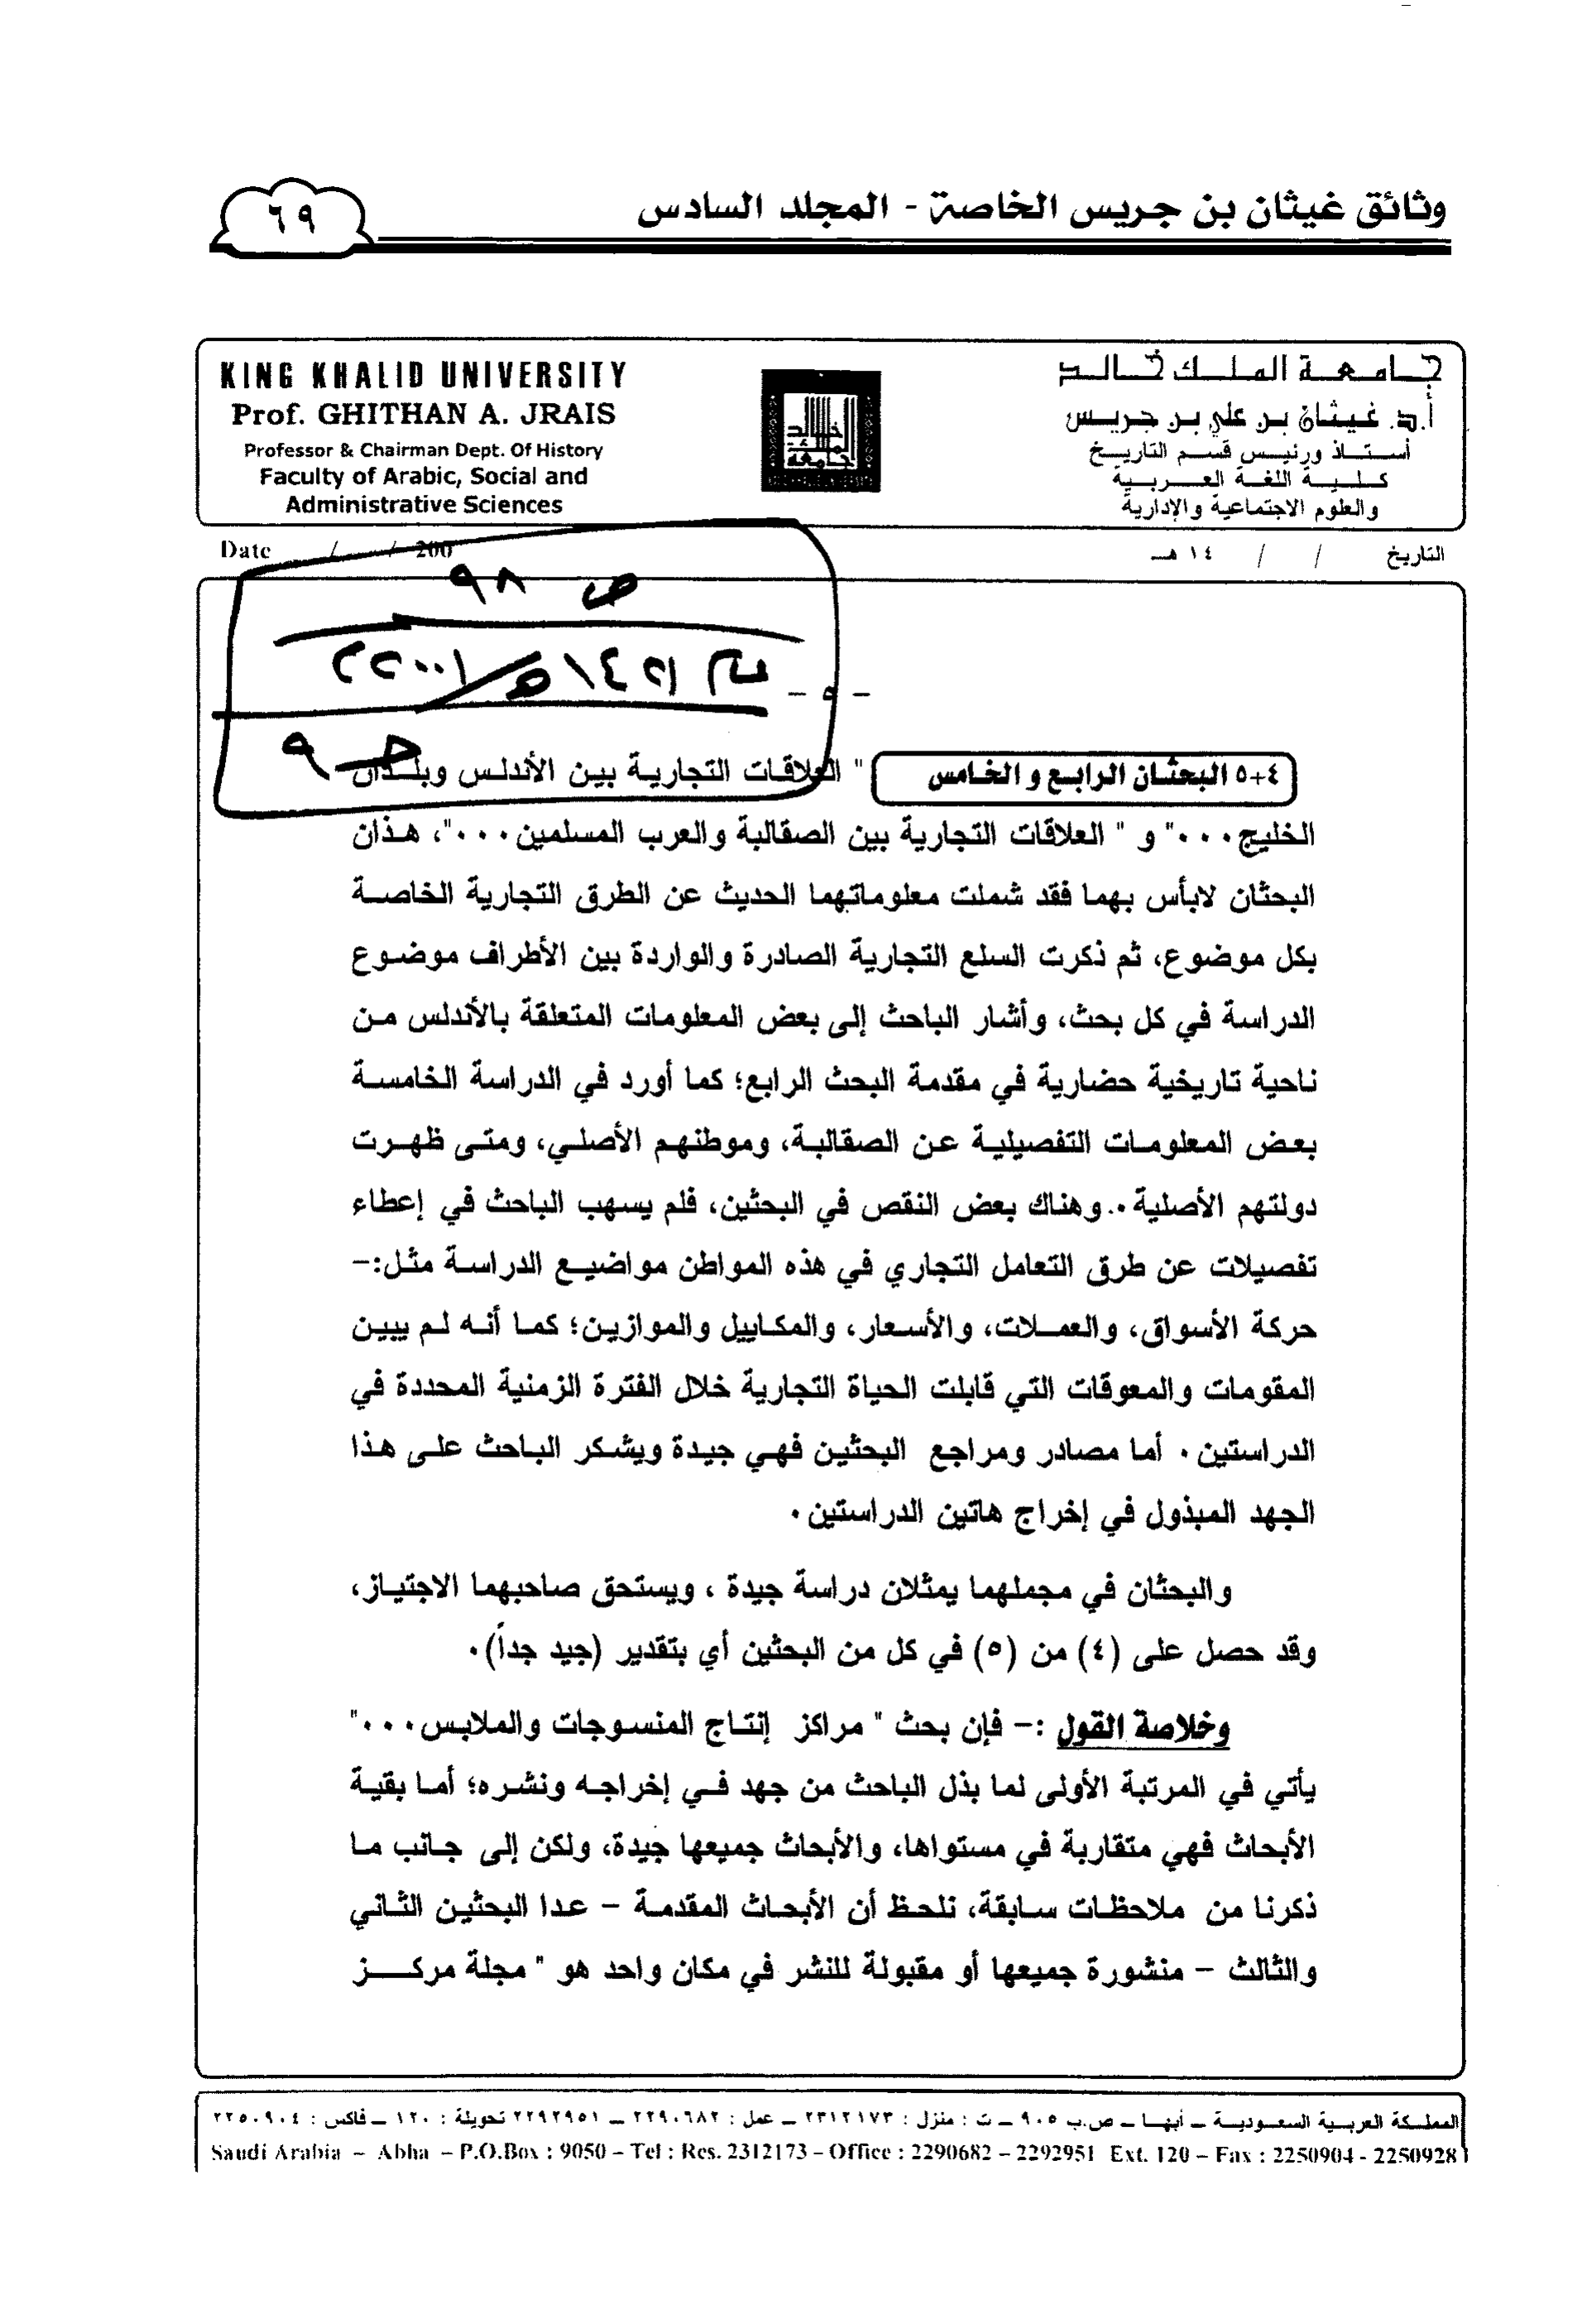 وثائق غيثان بن جريس الخاصة - المجلد السادس
٦٩
جامعة الملك خالد
أ.د. غيثان بن علي بن جريس
أستاذ ورئيس قسم التاريخ
كلية اللغة العربية
والعلوم الاجتماعية والإدارية
KING KHALID UNIVERSITY
Prof. GHITHAN A. JRAIS
Professor & Chairman Dept. Of History
Faculty of Arabic, Social and
Administrative Sciences
التاريخ / / ١٤ هـ
Date / / 200
ص ٩٨
- ٥ -
٤+٥ البحثان الرابع والخامس " العلاقات التجارية بين الأندلس وبلدان
الخليج ..." و " العلاقات التجارية بين الصقالبة والعرب المسلمين ..."، هذان
البحثان لابأس بهما فقد شملت معلوماتهما الحديث عن الطرق التجارية الخاصة
بكل موضوع، ثم ذكرت السلع التجارية الصادرة والواردة بين الأطراف موضوع
الدراسة في كل بحث، وأشار الباحث إلى بعض المعلومات المتعلقة بالأندلس من
ناحية تاريخية حضارية في مقدمة البحث الرابع؛ كما أورد في الدراسة الخامسة
بعض المعلومات التفصيلية عن الصقالبة، وموطنهم الأصلي، ومتى ظهرت
دولتهم الأصلية . وهناك بعض النقص في البحثين، فلم يسهب الباحث في إعطاء
تفصيلات عن طرق التعامل التجاري في هذه المواطن مواضيع الدراسة مثل:-
حركة الأسواق، والعملات، والأسعار، والمكاييل والموازين؛ كما أنه لم يبين
المقومات والمعوقات التي قابلت الحياة التجارية خلال الفترة الزمنية المحددة في
الدراستين . أما مصادر ومراجع البحثين فهي جيدة ويشكر الباحث على هذا
الجهد المبذول في إخراج هاتين الدراستين .
والبحثان في مجملهما يمثلان دراسة جيدة ، ويستحق صاحبهما الاجتياز،
وقد حصل على (٤) من (٥) في كل من البحثين أي بتقدير (جيد جداً) .
وخلاصة القول :- فإن بحث " مراكز إنتاج المنسوجات والملابس ..."
يأتي في المرتبة الأولى لما بذل الباحث من جهد في إخراجه ونشره؛ أما بقية
الأبحاث فهي متقاربة في مستواها، والأبحاث جميعها جيدة، ولكن إلى جانب ما
ذكرنا من ملاحظات سابقة، نلحظ أن الأبحاث المقدمة - عدا البحثين الثاني
والثالث - منشورة جميعها أو مقبولة للنشر في مكان واحد هو " مجلة مركز
المملكة العربية السعودية ــ أبها ــ ص.ب ٩٠٥ ــ ت : منزل : ٢٣١٢١٧٣ ــ عمل : ٢٢٩٠٦٨٢ ــ ٢٢٩٢٩٥١ تحويلة : ١٢٠ ــ فاكس : ٢٢٥٠٩٠٤
Saudi Arabia – Abha – P.O.Box : 9050 – Tel : Res. 2312173 – Office : 2290682 – 2292951 Ext. 120 – Fax : 2250904 - 2250928